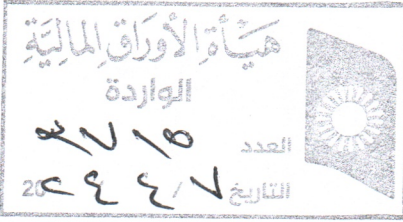 هَيْأَةُ الأَوْرَاقِ المَالِيَّةِ
الواردة
العدد ٣٧١٥
التاريخ ٧ / ٤ / 20٢٤